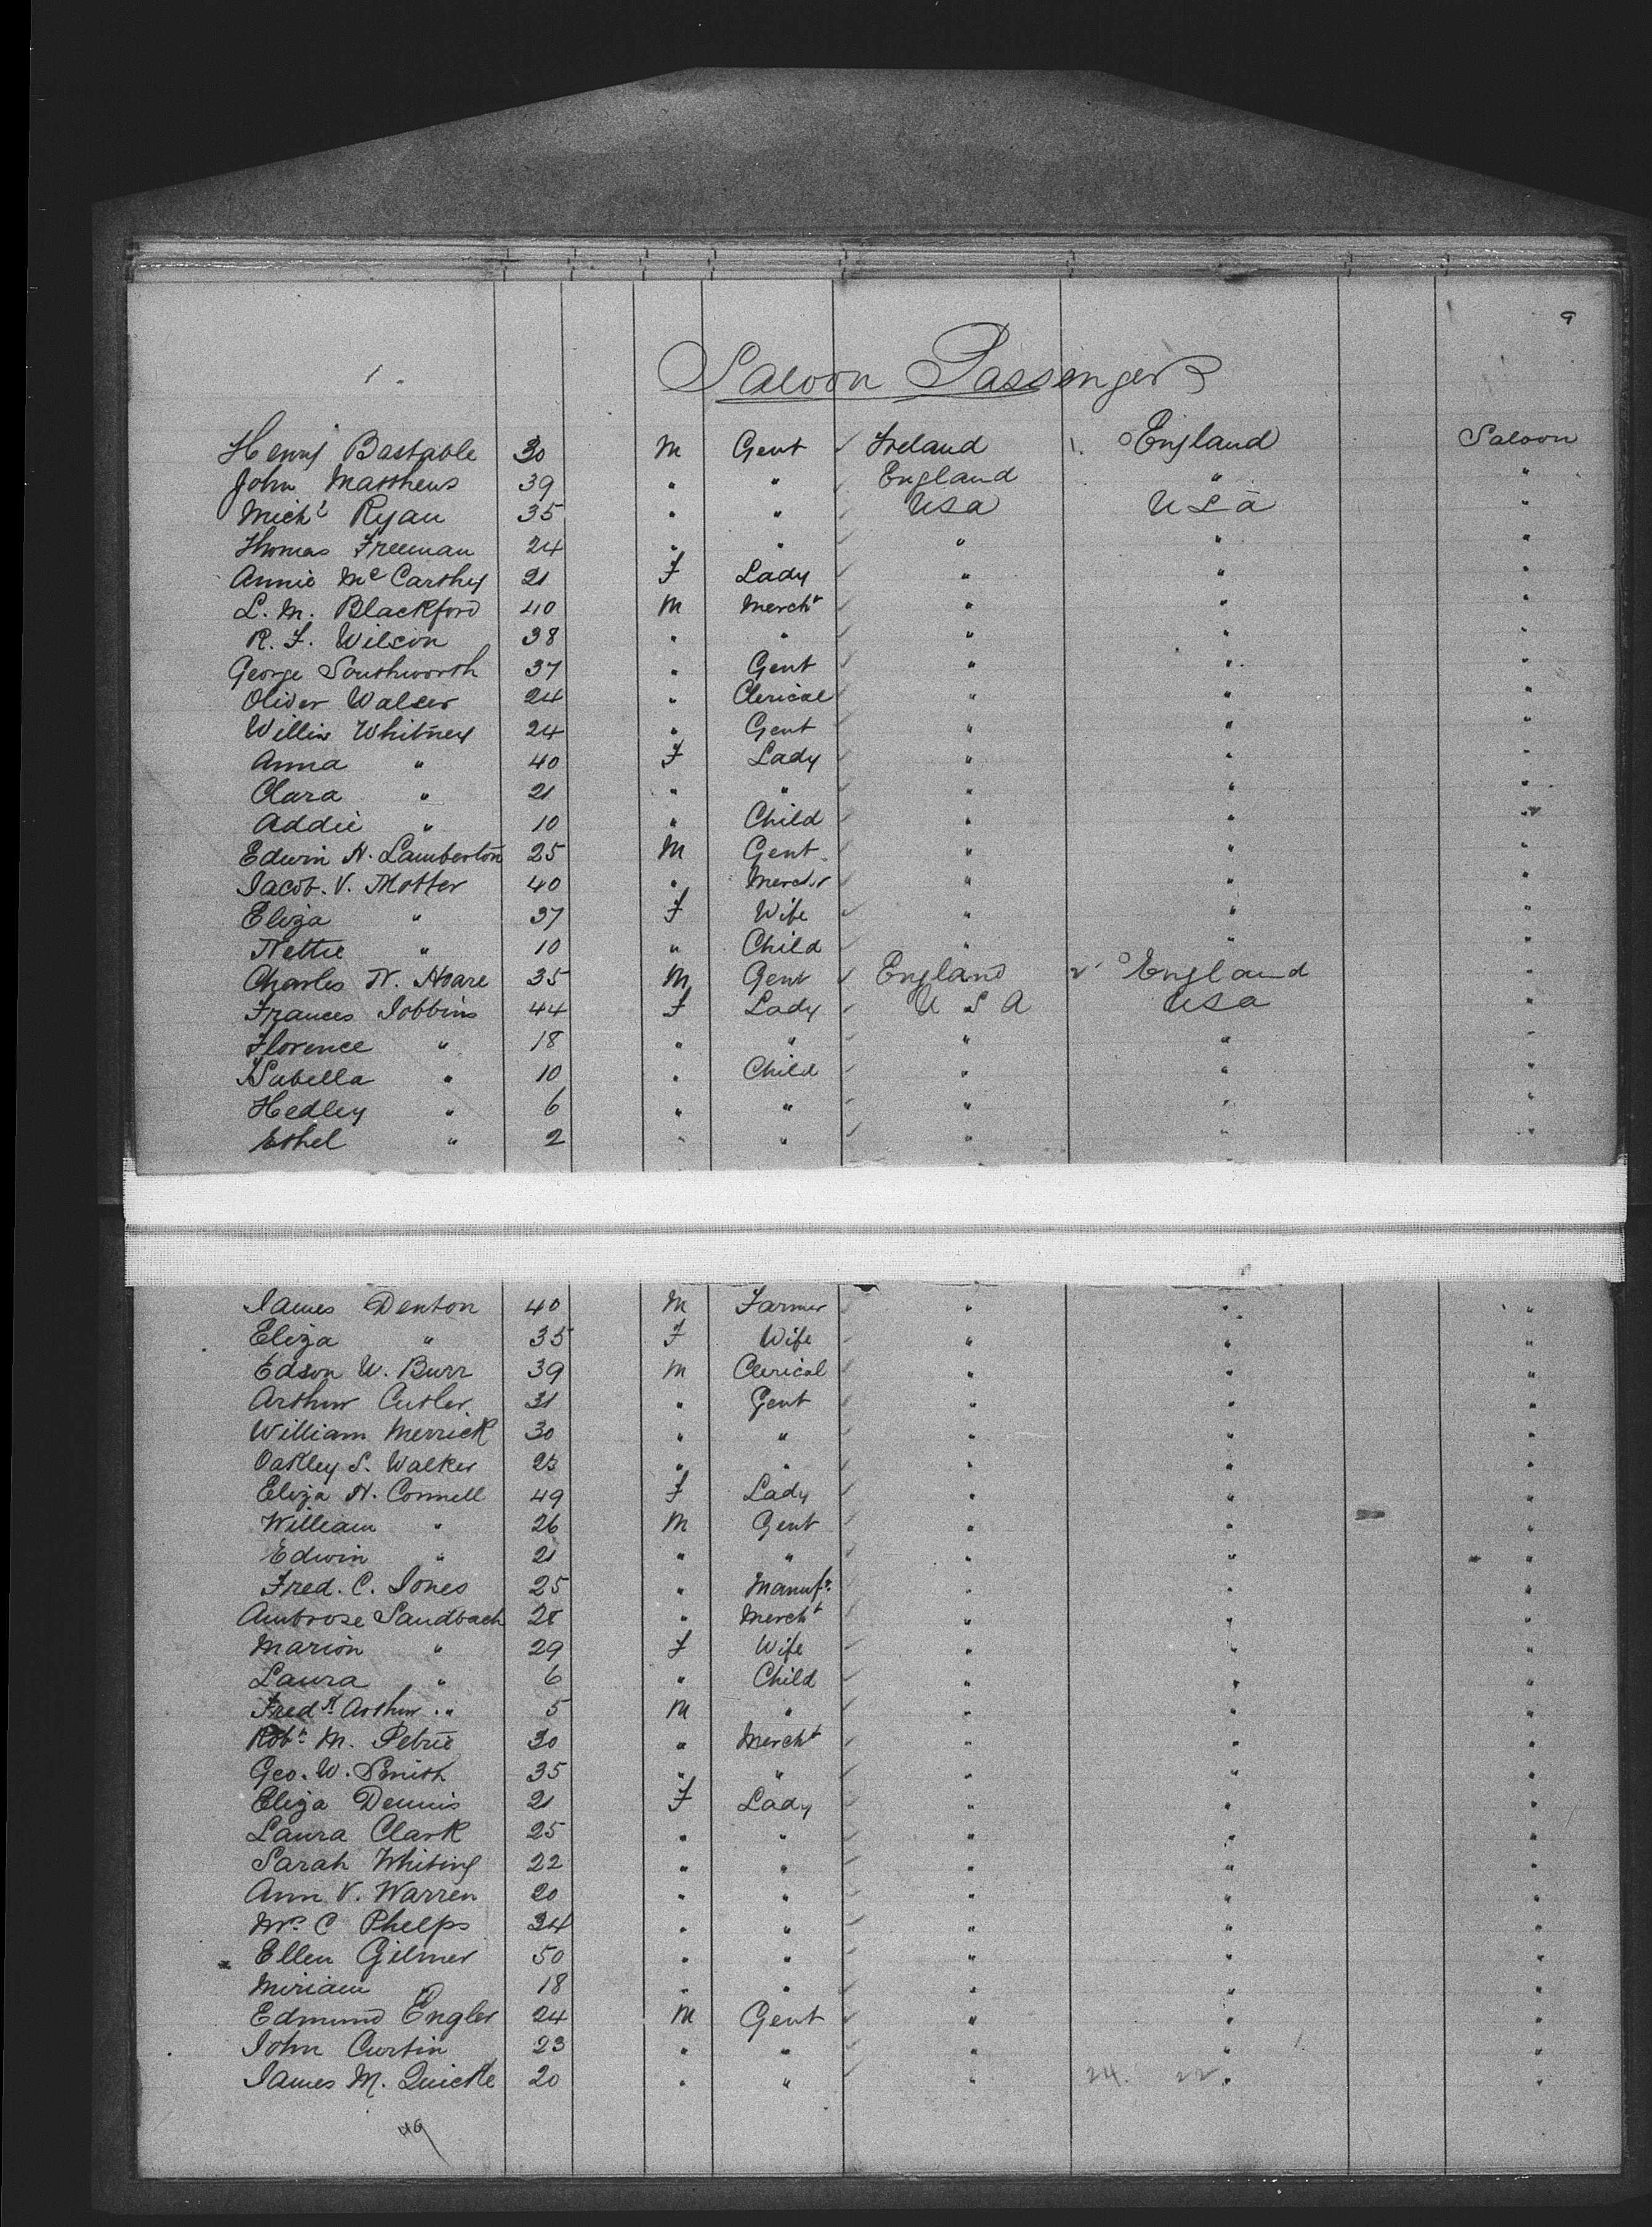 9
1.
Saloon Passengers
Henry Bastable 30 M Gent ✓ Ireland 1. England Saloon
John Matthews 39 " " ✓ England " "
Mich^l Ryan 35 " " ✓ USA USA "
Thomas Freeman 24 " " ✓ " " "
Annie McCarthy 21 F Lady ✓ " " "
L. M. Blackford 40 M Mercht ✓ " " "
R. F. Wilson 38 " " ✓ " " "
George Southworth 37 " Gent ✓ " " "
Oliver Walser 24 " Clerical ✓ " " "
Willis Whitney 24 " Gent ✓ " " "
Anna " 40 F Lady ✓ " " "
Clara " 21 " " ✓ " " "
Addie " 10 " Child ✓ " " "
Edwin H. Lamberton 25 M Gent ✓ " " "
Jacob. V. Motter 40 " Mercht ✓ " " "
Eliza " 37 F Wife ✓ " " "
Nettie " 10 " Child ✓ " " "
Charles N. Hoare 35 M Gent ✓ England 2 England "
Frances Jobbins 44 F Lady ✓ U S A USA "
Florence " 18 " " ✓ " " "
Isabella " 10 " Child ✓ " " "
Hedley " 6 " " ✓ " " "
Ethel " 2 " " ✓ " " "
James Denton 40 M Farmer ✓ " " "
Eliza " 35 F Wife ✓ " " "
Edson W. Burr 39 M Clerical ✓ " " "
Arthur Cutler 31 " Gent ✓ " " "
William Merrick 30 " " ✓ " " "
Oakley S. Walker 25 " " ✓ " " "
Eliza H. Connell 49 F Lady ✓ " " "
William " 26 M Gent ✓ " " "
Edwin " 21 " " ✓ " " "
Fred. C. Jones 25 " Manufr. ✓ " " "
Ambrose Sandbach " Mercht ✓ " " "
Marion " 29 F Wife ✓ " " "
Laura " 6 " Child ✓ " " "
Fredk Arthur " 5 M " ✓ " " "
Robt. M. Petrie 30 " Mercht ✓ " " "
Geo. W. Smith 35 " " ✓ " " "
Eliza Dennis 21 F Lady ✓ " " "
Laura Clark 25 " " ✓ " " "
Sarah Whiting 22 " " ✓ " " "
Ann V. Warren 20 " " ✓ " " "
Mrs C Phelps 34 " " ✓ " " "
Ellen Gilmer 50 " " ✓ " " "
Miriam " 18 " " ✓ " " "
Edmund Engler 24 M Gent ✓ " " "
John Curtin 23 " " ✓ " " "
James M. Quickle 20 " " ✓ " 24. 22 " "
49